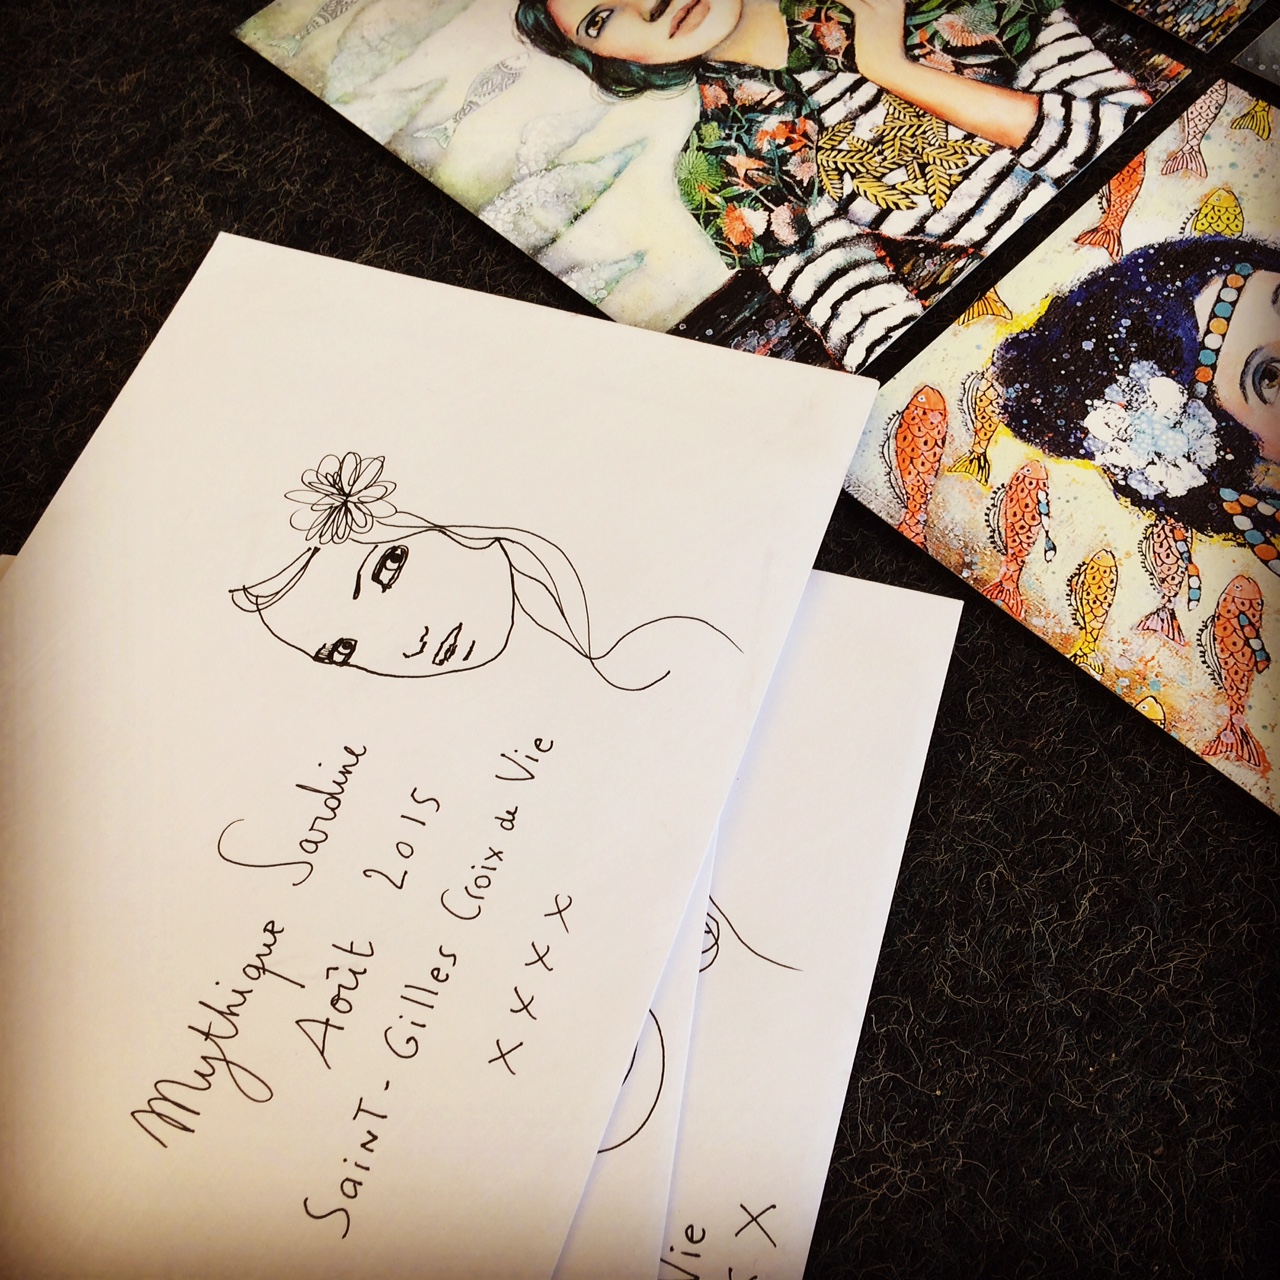 Mythique Sardine
Août 2015
Saint-Gilles Croix de Vie
x x x x
Vie
x